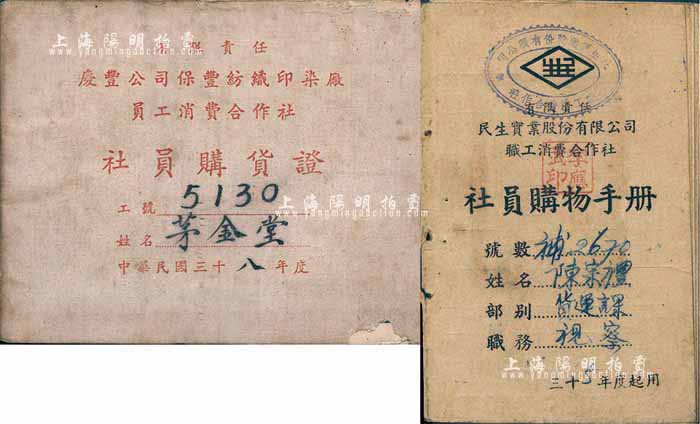 有限責任
慶豐公司保豐紡織印染廠
員工消費合作社
社員購貨證
工號 5130
姓名 茅金堂
中華民國三十八年度
上海陽明拍賣
www.yangmingauction.com
上海陽明拍賣
www.yangmingauction.com
有限責任
民生實業股份有限公司
職工消費合作社
社員購物手册
號數 補2670
姓名 陳宗禮
部別 貨運課
職務 視察
年度起用
上海陽明拍賣
www.yangmingauction.com
上海陽明拍賣
www.yangmingauction.com